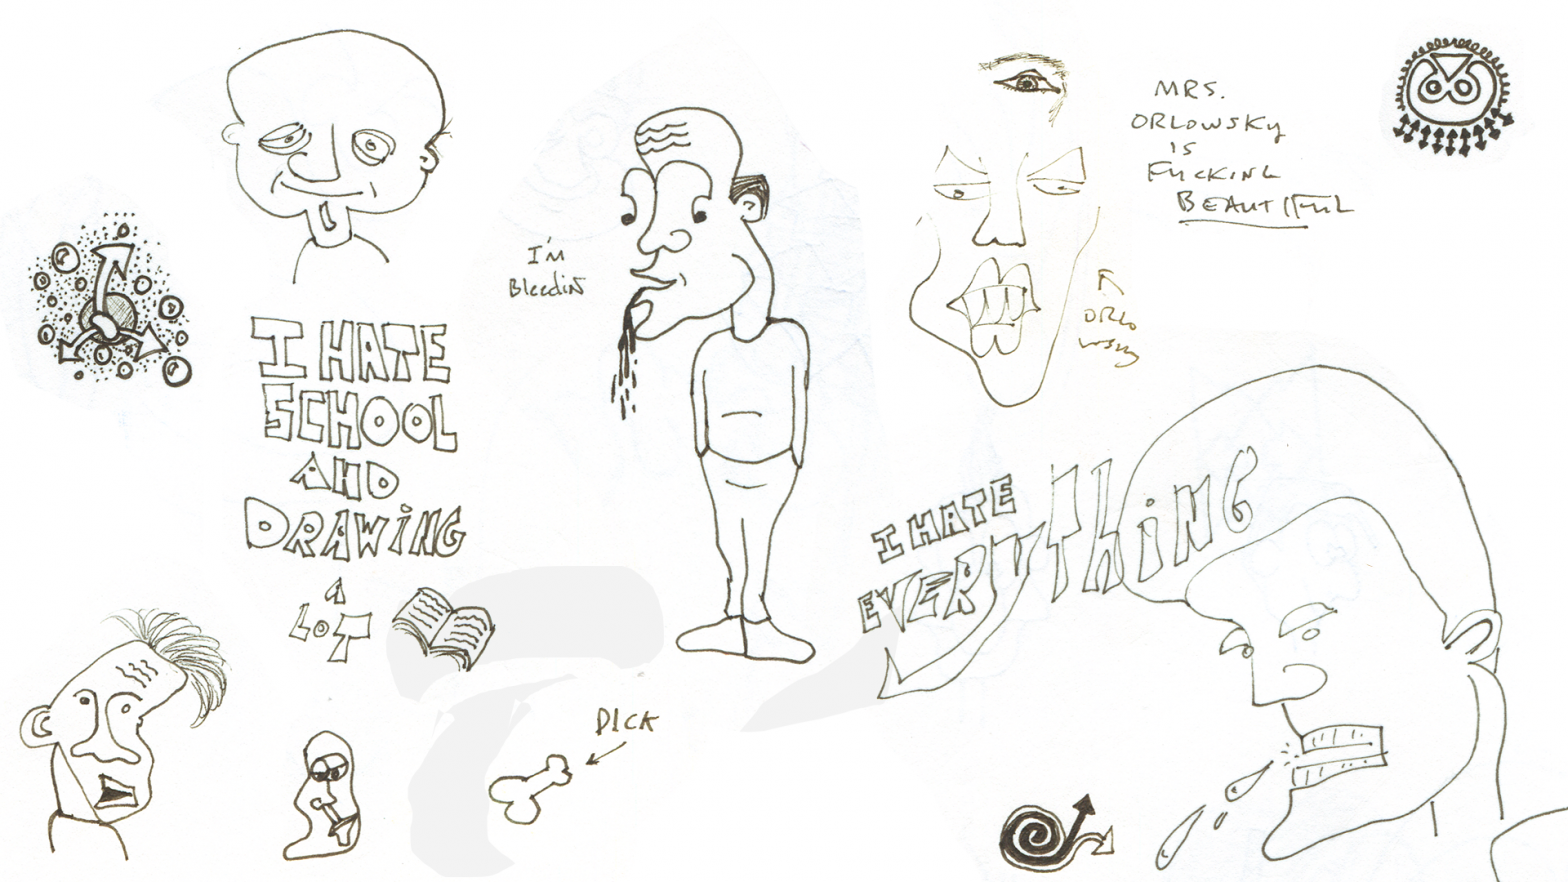 MRS.
ORLOWSKY
IS
FUCKING
BEAUTIFUL
I'm
Bleedin
ORLO
WSKY
I HATE
SCHOOL
AND
DRAWiNG
A
LOT
I HATE
EVERYThiNG
DICK